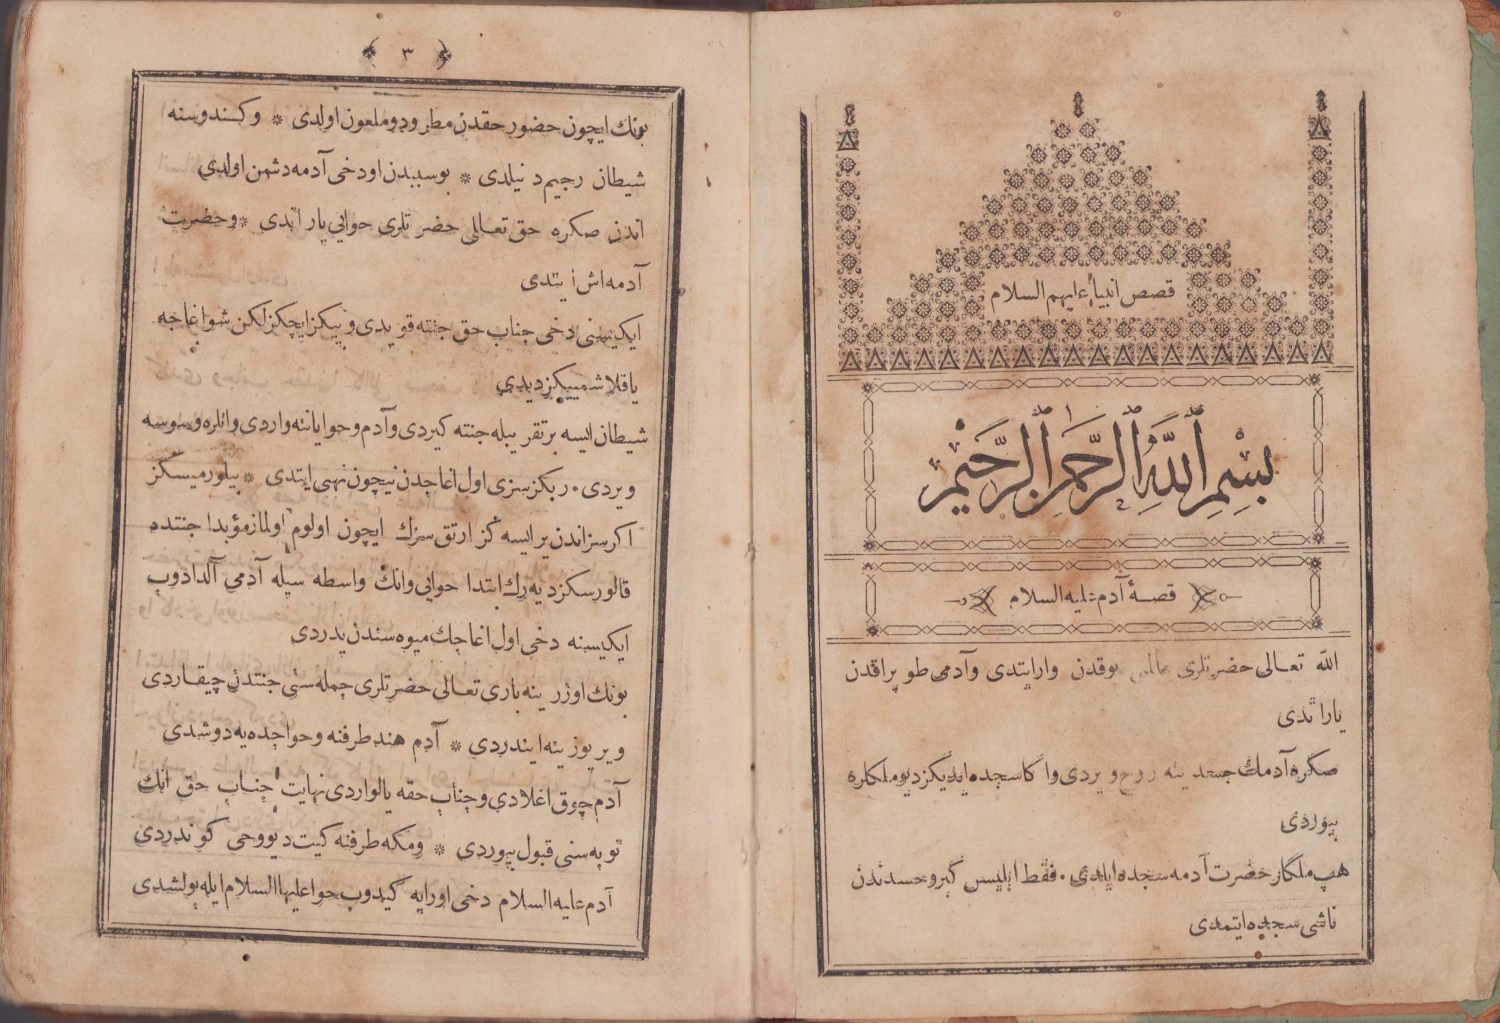 قصص انبیاء علیهم السلام
بِسْمِ اللّٰهِ الرَّحْمٰنِ الرَّحِیْمِ
قصهٔ آدم علیه السلام
الله تعالی حضرتلری عالمی یوقدن وار ایتدی وآدمی طوپراقدن
یاراتدی
صکره آدمك جسدینه روح ویردی واکا سجده ایدیکز دیو ملکلره
بیوردی
هپ ملکلر حضرت آدمه سجده ایلدی . فقط ابلیس کبر و حسدندن
ناشی سجده ایتمدی
﴿ ٣ ﴾
بونك ایچون حضور حقدن مطرود وملعون اولدی * وکندوسنه
شیطان رجیم دنیلدی * بو سببدن او دخی آدمه دشمن اولدی
اندن صکره حق تعالی حضرتلری حوایی یاراتدی * وحضرت
آدمه اش ایتدی
ایکیسنی دخی جناب حق جنته قویدی وییکز ایچکز لکن شو اغاجه
یاقلاشمییکز دیدی
شیطان ایسه بر تقریبله جنته کیردی وآدم وحوا یاننه واردی وانلره وسوسه
ویردی . ربکز سزی اول اغاجدن نیچون نهی ایتدی * بیلورمیسکز
اکر سز اندن یر ایسه کز ارتق سزك ایچون اولوم اولماز مؤبدا جنتده
قالورسکز دیه رك ابتدا حوایی وانك واسطه سیله آدمی آلدادوب
ایکیسنه دخی اول اغاجك میوه سندن یدردی
بونك اوزرینه باری تعالی حضرتلری جمله سنی جنتدن چیقاردی
ویر یوزینه ایندردی * آدم هند طرفنه وحوا جده یه دوشدی
آدم چوق اغلادی وجناب حقه یالواردی نهایت جناب حق انك
توبه سنی قبول بیوردی * ومکه طرفنه کیت دیو وحی کوندردی
آدم علیه السلام دخی اورایه کیدوب حوا علیها السلام ایله بولشدی